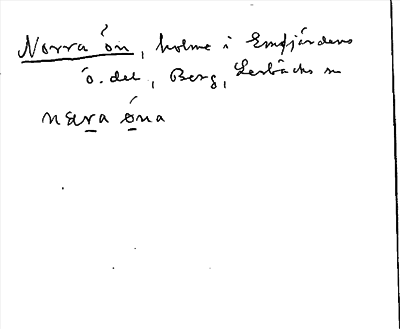 Norra ón, holme i Emfjärdens
ö. del, Berg, Lerbäcks sn
næra óna